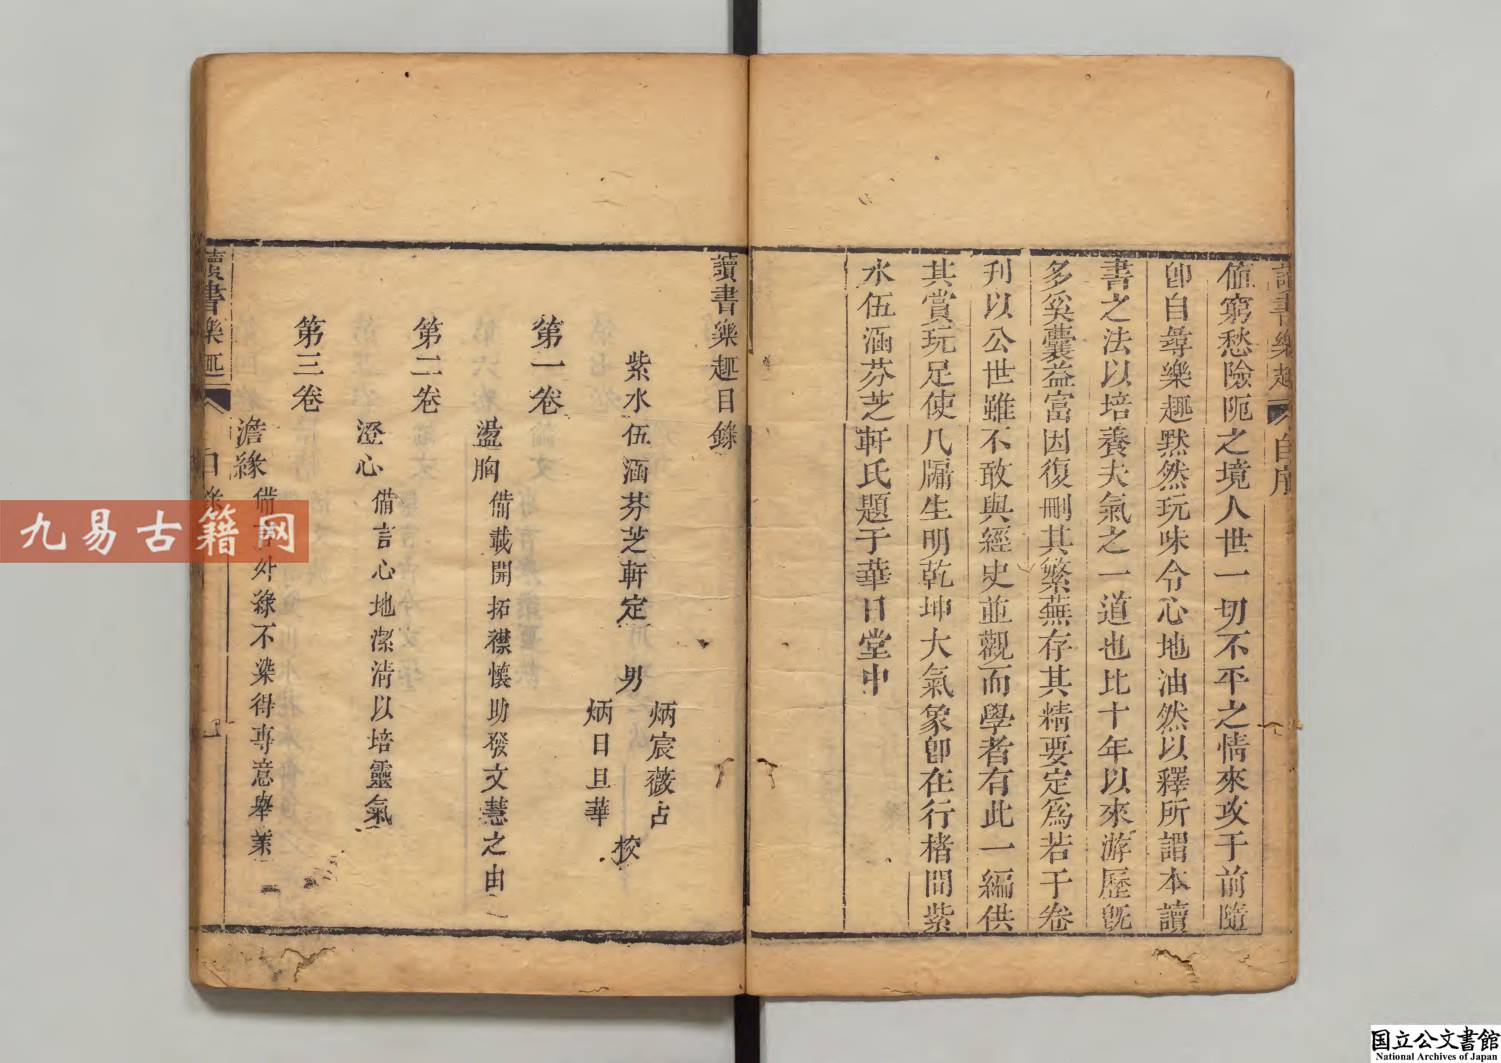 讀書樂趣 自序
值窮愁險阨之境人世一切不平之情來攻于前隨
卽自尋樂趣黙然玩味令心地油然以釋所謂本讀
書之法以培養夫氣之一道也比十年以來游歷旣
多奚囊益富因復刪其繁蕪存其精要定爲若干卷
刋以公世雖不敢與經史並觀而學者有此一編供
其賞玩足使几牖生明乾坤大氣象卽在行楮間紫
水伍涵芬芝軒氏題于華日堂中
讀書樂趣目錄
紫水伍涵芬芝軒定 男
炳宸薇占
炳日旦華
挍
第一卷
盪胸 備載開拓襟懷助發文慧之由
第二卷
澄心 備言心地潔清以培靈氣
第三卷
澹緣 備言外緣不染得專意舉業
讀書樂趣 目錄 一
九易古籍网
国立公文書館
National Archives of Japan